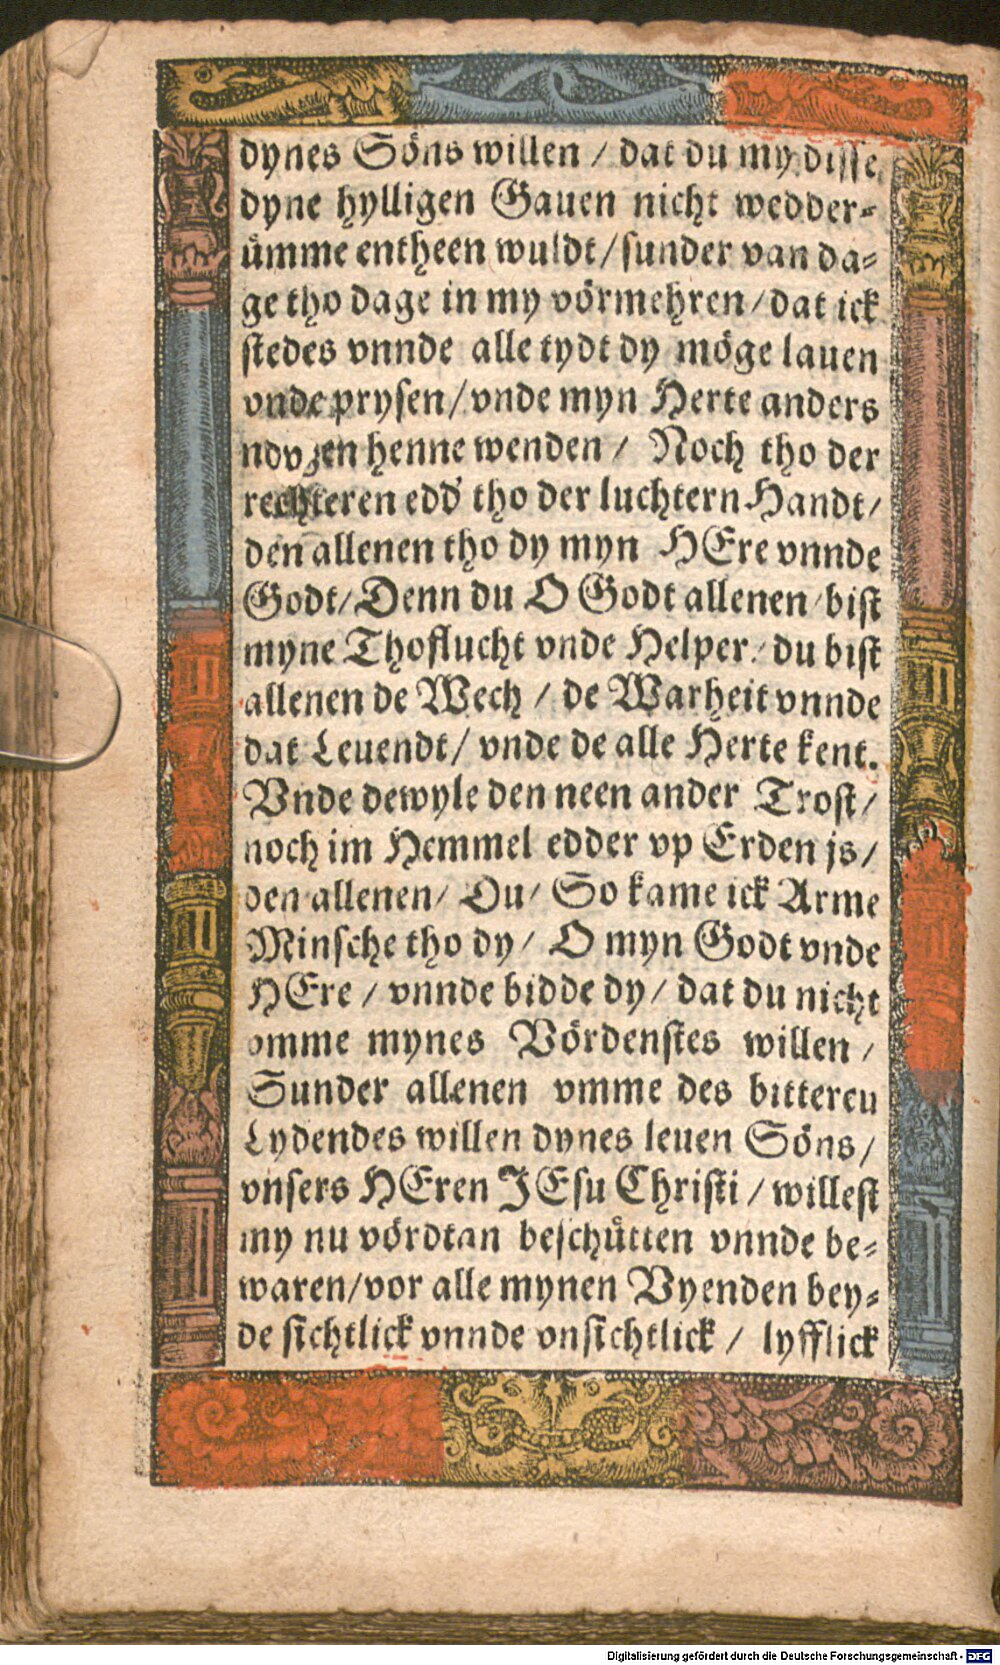 dynes Söns willen / dat du my disse
dyne hylligen Gauen nicht wedder-
ümme entheen wuldt / sunder van da-
ge tho dage in my vörmehren / dat ick
stedes vnnde alle tydt dy möge lauen
vnde prysen / vnde myn Herte anders
henne wenden / Noch tho der
rechteren edd' tho der luchtern Handt /
den allenen tho dy myn HEre vnnde
Godt / Denn du O Godt allenen bist
myne Thoflucht vnde Helper / du bist
allenen de Wech / de Warheit vnnde
dat Leuendt / vnde de alle Herte kent.
Vnde dewyle den neen ander Trost /
noch im Hemmel edder vp Erden js /
den allenen / Du / So kame ick Arme
Minsche tho dy / O myn Godt vnde
HEre / vnnde bidde dy / dat du nicht
omme mynes Vördenstes willen /
Sunder allenen vmme des bittereu
Lydendes willen dynes leuen Söns /
vnsers HEren JEsu Christi / willest
my nu vördtan beschütten vnnde be-
waren / vor alle mynen Vyenden bey-
de sichtlick vnnde vnsichtlick / lyfflick
Digitalisierung gefördert durch die Deutsche Forschungsgemeinschaft - DFG